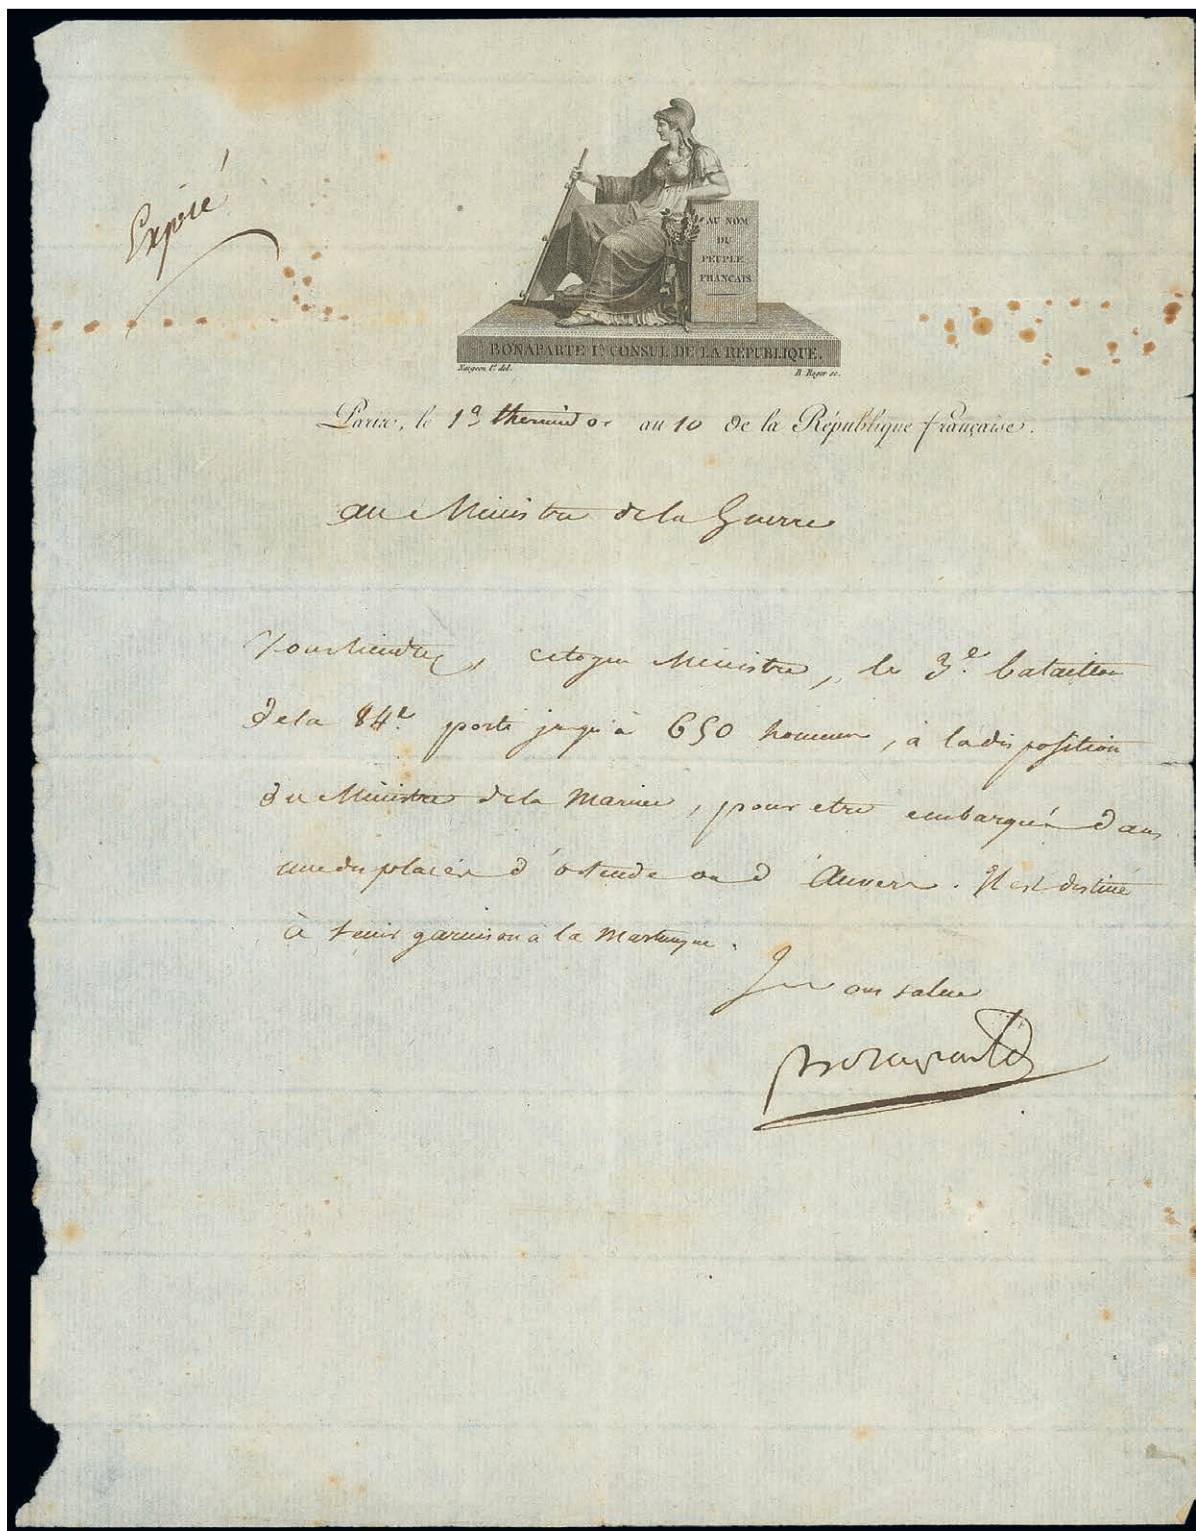 Expié
AU NOM
DU
PEUPLE
FRANÇAIS
BONAPARTE Ier CONSUL DE LA RÉPUBLIQUE.
Naigeon ft. del.
B. Roger sc.
Paris, le 19 thermidor an 10 de la République française.
au Ministre de la Guerre
Vous tiendrez, citoyen Ministre, le 3e. bataillon
de la 84e. porté jusqu'à 650 hommes, à la disposition
du Ministre de la Marine, pour etre embarqué dans
une des places d'ostende ou d'Anvers. Il est destiné
à tenir garnison à la Martinique.
Je vous salue
Bonaparte